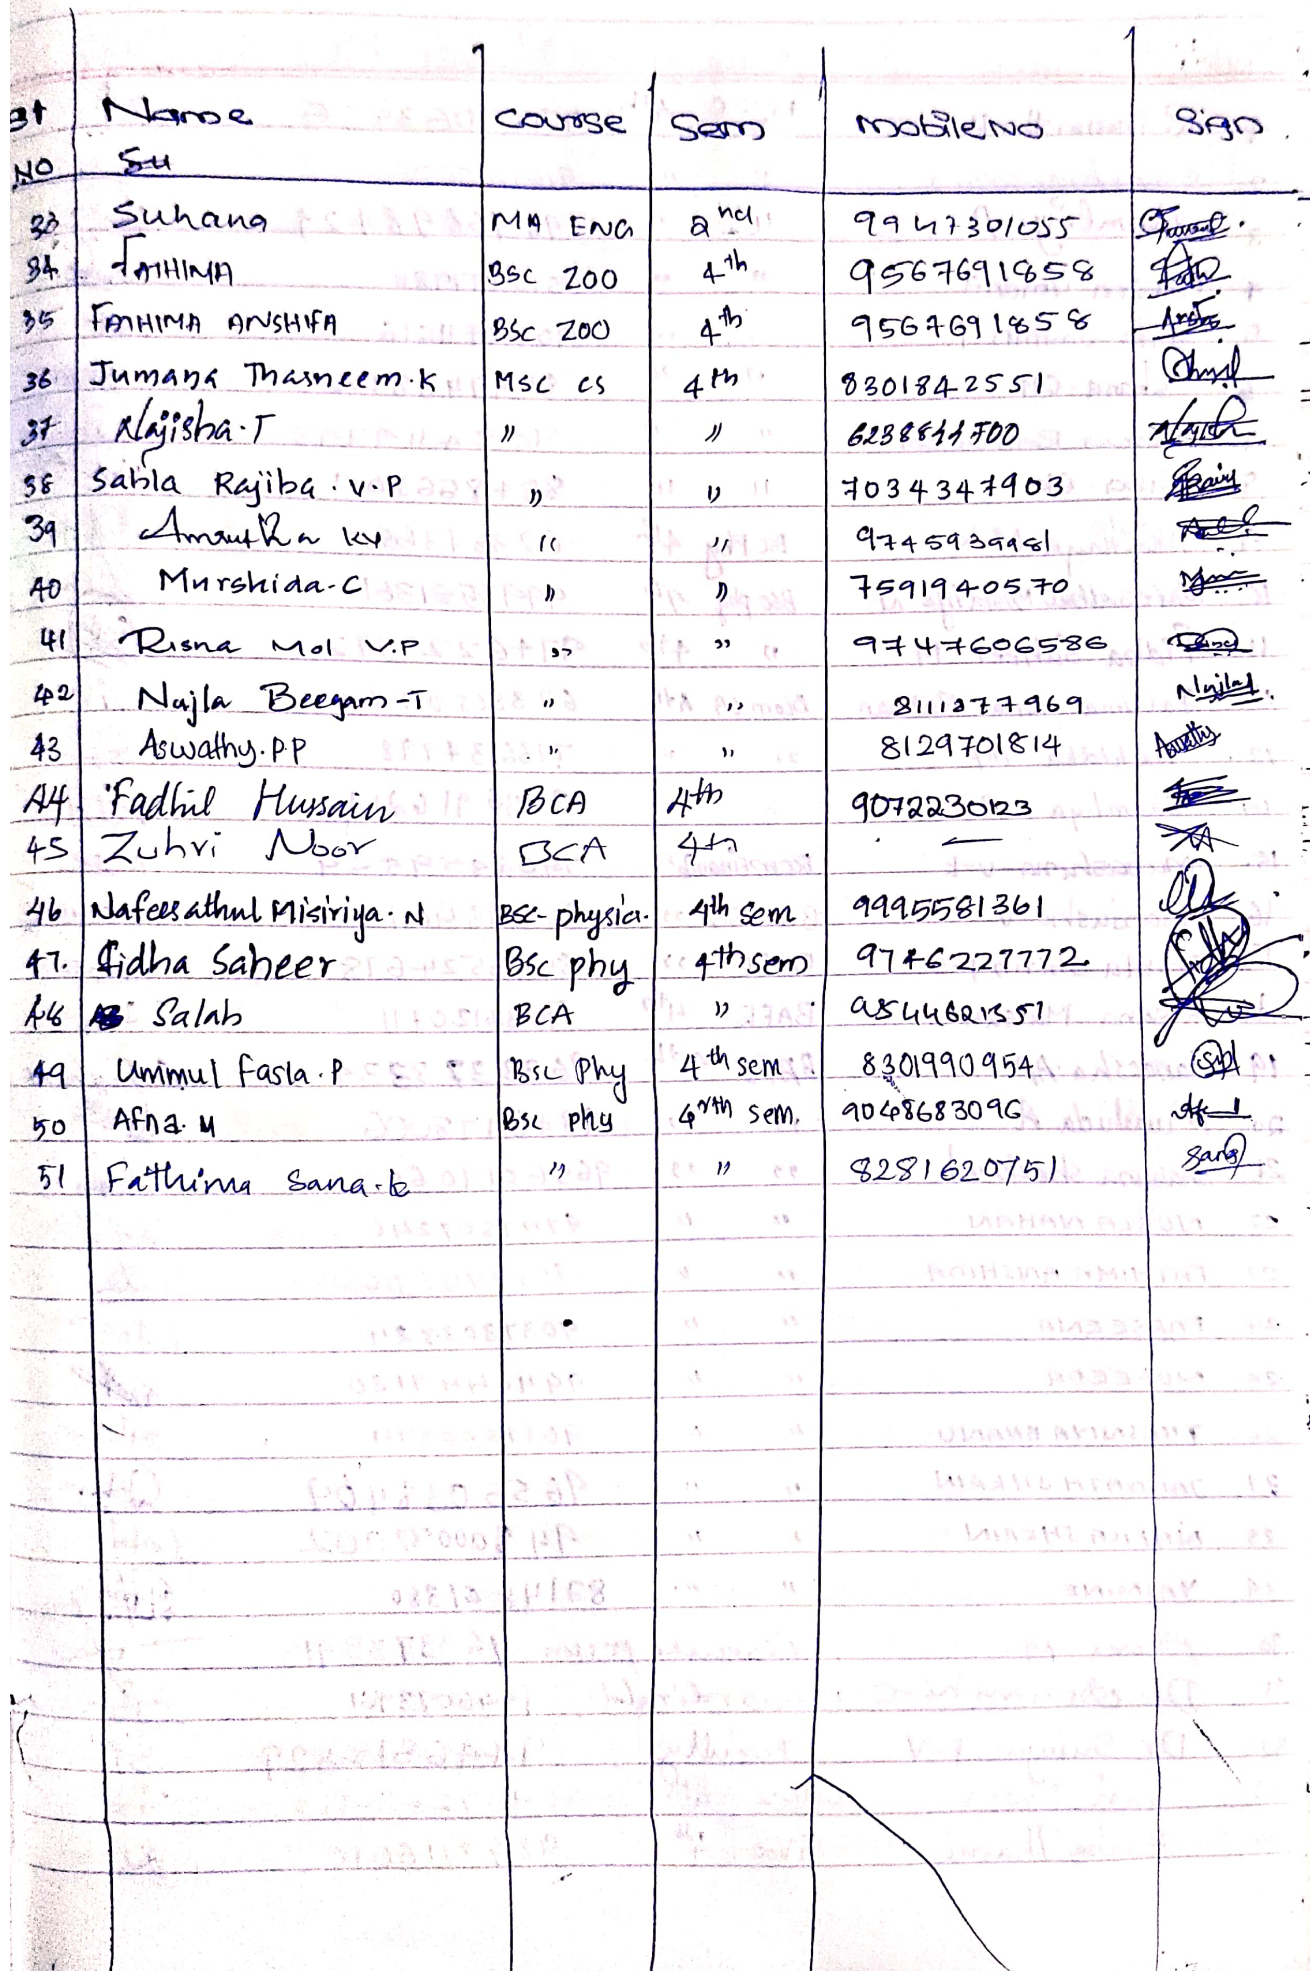 Name course Sem Mobile No Sign
NO
33 Suhana MA ENG 2nd 9947301055
34 FATHIMA BSC ZOO 4th 9567691858
35 FATHIMA ANSHIFA BSC ZOO 4th 9567691858
36 Jumana Thasneem.K MSC CS 4th 8301842551
37 Najisha.T " "
38 Sabla Rajiba.V.P " " 7034347903
39 Amrutha KV " " 9745939981
40 Murshida-C " " 7591940570
41 Risna Mol V.P " " 9747606586
42 Najla Beegam-T " " 8111277969 Najla
43 Aswathy.P.P " " 8129701814 Aswathy
44 Fadhil Hussain BCA 4th 9072230123
45 Zuhri Noor BCA 4th -
46 Nafeesathul Misiriya.N BSC-physics. 4th Sem 9995581361
47. Fidha Saheer BSc phy 4th sem 9746227772
48 Salah BCA "
49 Ummul Fasla.P BSc Phy 4th sem 8301990954
50 Afna.M BSc phy 4rth sem. 9048683096
51 Fathima Sana.k " " 8281620751 Sana